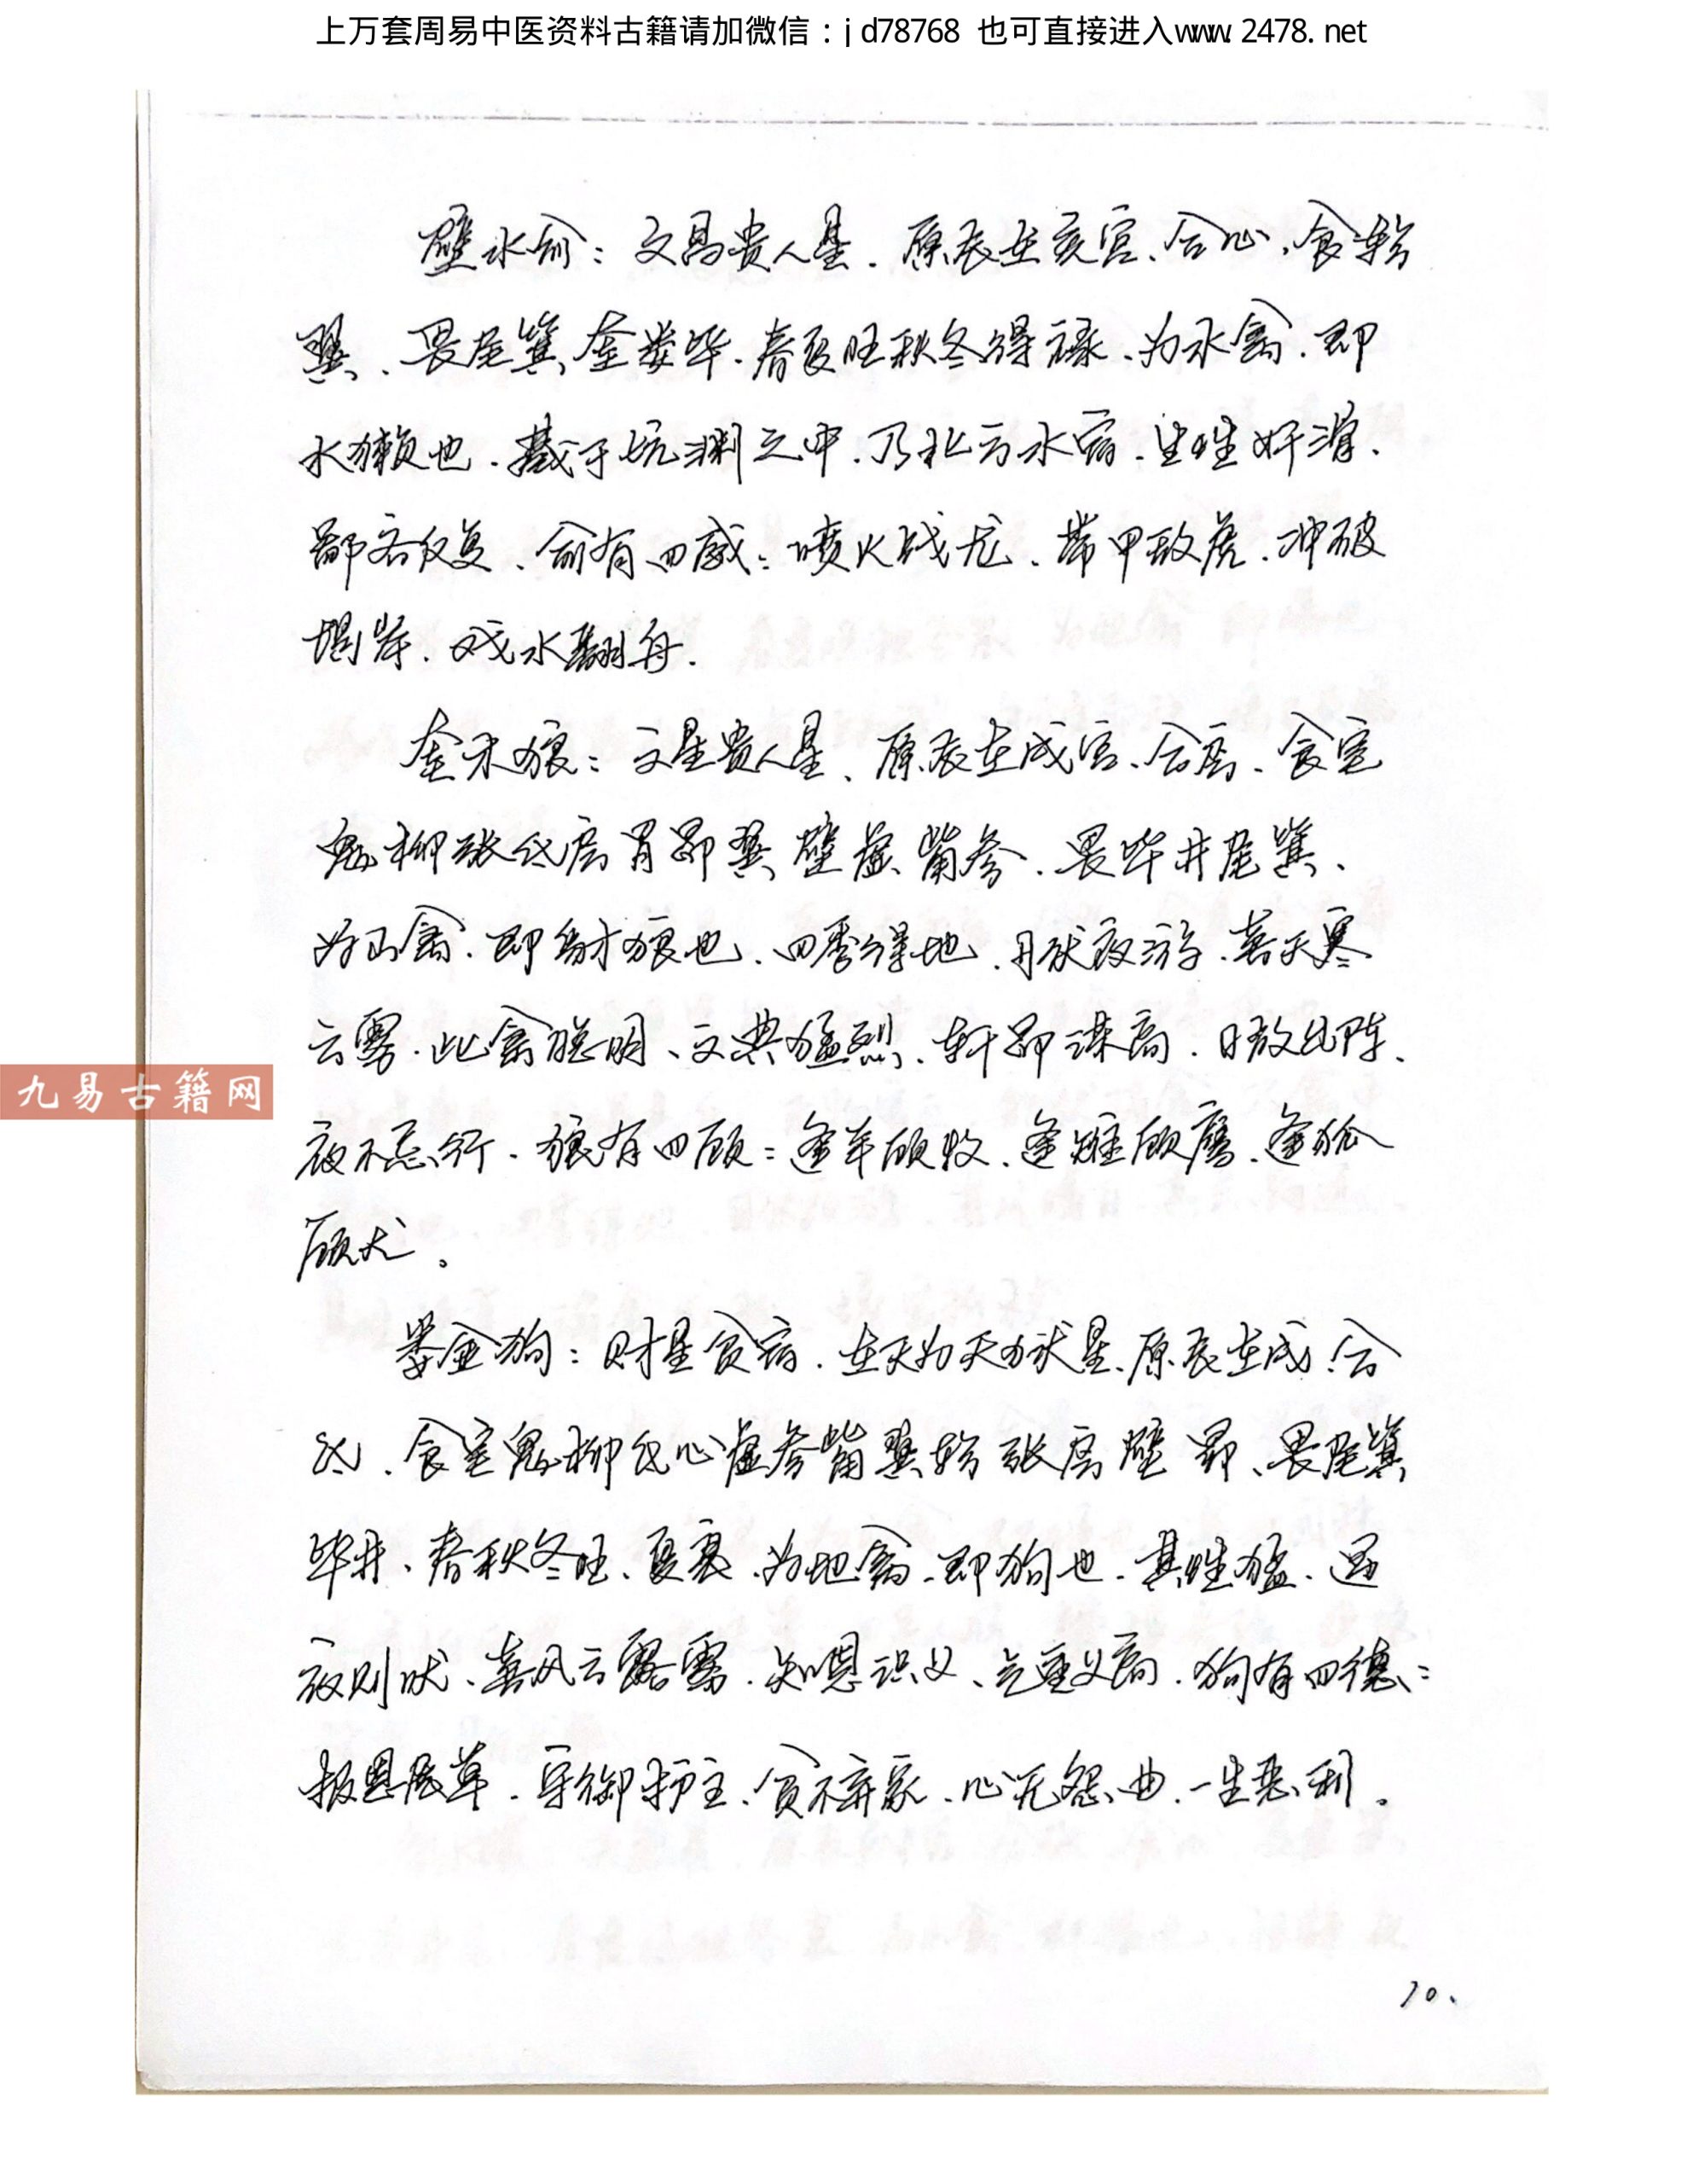 上万套周易中医资料古籍请加微信：jd78768 也可直接进入www.2478.net
壁水俞：文昌贵人星、原辰在亥宫、合心、食轸
翼、畏尾箕奎娄毕、春夏旺秋冬得禄、为水禽、即
水獭也、藏于坑渊之中、乃北方水宿、生性奸滑、
鄙吝反复、俞有四威：喷火战龙、带甲敌虎、冲破
堤岸、戏水翻舟.
奎木狼：文星贵人星、原辰在戌宫、合房、食室
鬼柳张氐房胃昴翼壁虚觜参、畏毕井尾箕、
为山禽、即豺狼也、四季得地、日伏夜游、喜天寒
云雾、此禽聪明、文典猛烈、轩昂谋高、日放出阵、
夜不忌行、狼有四顾：逢羊顾牧、逢雉顾鹰、逢狐
顾犬。
娄金狗：财星贪宿、在天为天伏星、原辰在戌、合
氐、食室鬼柳氐心虚参觜翼轸张房壁昴、畏尾箕
毕井、春秋冬旺、夏衰、为地禽、即狗也、其性猛、逐
夜则吠、喜风云露雾、知恩识义、气重义高、狗有四德：
报恩展草、守御护主、贫不弃家、心无怨曲、一生恶利。
70、
九易古籍网